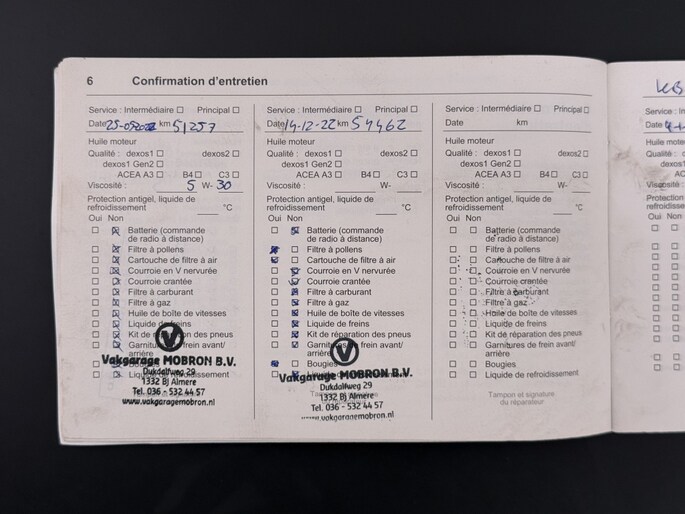 6 Confirmation d'entretien
Service : Intermédiaire Principal
Date 25-05-2022 km 51257
Huile moteur
Qualité : dexos1 dexos2
dexos1 Gen2
ACEA A3 B4 C3
Viscosité : 5 W- 30
Protection antigel, liquide de
refroidissement °C
Oui Non
Batterie (commande
de radio à distance)
Filtre à pollens
Cartouche de filtre à air
Courroie en V nervurée
Courroie crantée
Filtre à carburant
Filtre à gaz
Huile de boîte de vitesses
Liquide de freins
Kit de réparation des pneus
Garnitures de frein avant/
arrière
Bougies
Liquide de refroidissement
V
Vakgarage MOBRON B.V.
Dukdalfweg 29
1332 Bj Almere
Tel. 036 - 532 44 57
www.vakgaragemobron.nl
Service : Intermédiaire Principal
Date 14-12-22 km 54462
Huile moteur
Qualité : dexos1 dexos2
dexos1 Gen2
ACEA A3 B4 C3
Viscosité : W-
Protection antigel, liquide de
refroidissement °C
Oui Non
Batterie (commande
de radio à distance)
Filtre à pollens
Cartouche de filtre à air
Courroie en V nervurée
Courroie crantée
Filtre à carburant
Filtre à gaz
Huile de boîte de vitesses
Liquide de freins
Kit de réparation des pneus
Garnitures de frein avant/
arrière
Bougies
Liquide de refroidissement
V
Vakgarage MOBRON B.V.
Dukdalfweg 29
1332 Bj Almere
Tel. 036 - 532 44 57
www.vakgaragemobron.nl
Service : Intermédiaire Principal
Date km
Huile moteur
Qualité : dexos1 dexos2
dexos1 Gen2
ACEA A3 B4 C3
Viscosité : W-
Protection antigel, liquide de
refroidissement °C
Oui Non
Batterie (commande
de radio à distance)
Filtre à pollens
Cartouche de filtre à air
Courroie en V nervurée
Courroie crantée
Filtre à carburant
Filtre à gaz
Huile de boîte de vitesses
Liquide de freins
Kit de réparation des pneus
Garnitures de frein avant/
arrière
Bougies
Liquide de refroidissement
Tampon et signature
du réparateur
Service : In
Date
Huile moteu
Qualité : d
Viscosité :
Protection a
refroidisseme
Oui Non